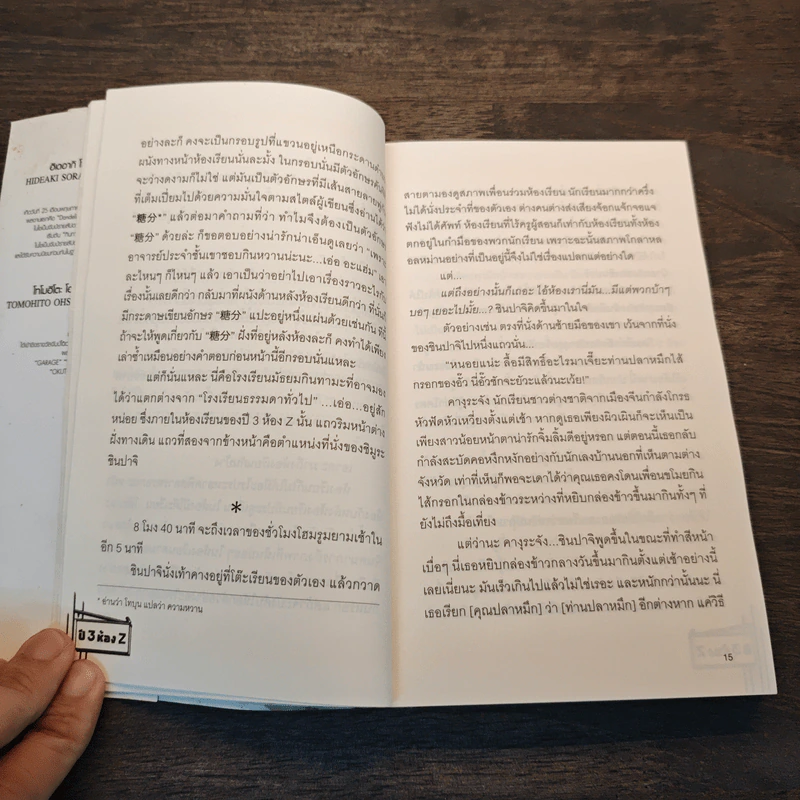 ฮิเดอากิ
HIDEAKI SORA
โทโมฮิโตะ
TOMOHITO OHS
"GARAGE"
อย่างละก็ คงจะเป็นกรอบรูปที่แขวนอยู่เหนือกระดานดำ
ผนังทางหน้าห้องเรียนนั่นละมั้ง ในกรอบนั่นมีตัวอักษรคันจิ
จะว่างดงามก็ไม่ใช่ แต่มันเป็นตัวอักษรที่มีเส้นสายลายพู่กัน
ที่เต็มเปี่ยมไปด้วยความมั่นใจตามสไตล์ผู้เขียนซึ่งอ่านได้ว่า
"糖分*" แล้วต่อมาคำถามที่ว่า ทำไมจึงต้องเป็นตัวอักษร
"糖分" ด้วยล่ะ ก็ขอตอบอย่างน่ารักน่าเอ็นดูเลยว่า "เพราะ
อาจารย์ประจำชั้นเขาชอบกินหวานน่ะนะ...เอ่อ อะแฮ่ม" เอา
ละไหนๆ ก็ไหนๆ แล้ว เอาเป็นว่าอย่าไปเอาเรื่องราวอะไรกับ
เรื่องนั้นเลยดีกว่า กลับมาที่ผนังด้านหลังห้องเรียนดีกว่า ที่นั่น
มีกระดาษเขียนอักษร "糖分" แปะอยู่หนึ่งแผ่นด้วยเช่นกัน ทีนี้
ถ้าจะให้พูดเกี่ยวกับ "糖分" ฝั่งที่อยู่หลังห้องละก็ คงทำได้เพียง
เล่าซ้ำเหมือนอย่างคำตอบก่อนหน้านี้อีกรอบนั่นแหละ
แต่ก็นั่นแหละ นี่คือโรงเรียนมัธยมกินทามะที่อาจมอง
ได้ว่าแตกต่างจาก "โรงเรียนธรรมดาทั่วไป" ...เอ่อ...อยู่สัก
หน่อย ซึ่งภายในห้องเรียนของปี 3 ห้อง Z นั้น แถวริมหน้าต่าง
ฝั่งทางเดิน แถวที่สองจากข้างหน้าคือตำแหน่งที่นั่งของชิมูระ
ชินปาจิ
*
8 โมง 40 นาที จะถึงเวลาของชั่วโมงโฮมรูมยามเช้าใน
อีก 5 นาที
ชินปาจินั่งเท้าคางอยู่ที่โต๊ะเรียนของตัวเอง แล้วกวาด
* อ่านว่า โทบุน แปลว่า ความหวาน
ปี 3 ห้อง Z
สายตามองดูสภาพเพื่อนร่วมห้องเรียน นักเรียนมากกว่าครึ่ง
ไม่ได้นั่งประจำที่ของตัวเอง ต่างคนต่างส่งเสียงจ๊อกแจ๊กจอแจ
ฟังไม่ได้ศัพท์ ห้องเรียนที่ไร้ครูผู้สอนก็เท่ากับห้องเรียนทั้งห้อง
ตกอยู่ในกำมือของพวกนักเรียน เพราะฉะนั้นสภาพโกลาหล
อลหม่านอย่างที่เป็นอยู่นี้จึงไม่ใช่เรื่องแปลกแต่อย่างใด
แต่...
แต่ถึงอย่างนั้นก็เถอะ ไอ้ห้องเรานี่มัน...มีแต่พวกบ้าๆ
บอๆ เยอะไปมั้ย...? ชินปาจิคิดขึ้นมาในใจ
ตัวอย่างเช่น ตรงที่นั่งด้านซ้ายมือของเขา เว้นจากที่นั่ง
ของชินปาจิไปหนึ่งแถวนั่น...
"หนอยแน่ะ ลื้อมีสิทธิ์อะไรมาเจี๊ยะท่านปลาหมึกไส้
กรอกของอั๊ว นี่อั๊วชักจะยัวะแล้วนะเว้ย!"
คางุระจัง นักเรียนชาวต่างชาติจากเมืองจีนกำลังโกรธ
หัวฟัดหัวเหวี่ยงตั้งแต่เช้า หากดูเธอเพียงผิวเผินก็จะเห็นเป็น
เพียงสาวน้อยหน้าตาน่ารักจิ้มลิ้มดีอยู่หรอก แต่ตอนนี้เธอกลับ
กำลังสะบัดคอหงึกหงักอย่างกับนักเลงบ้านนอกที่เห็นตามต่าง
จังหวัด เท่าที่เห็นก็พอจะเดาได้ว่าคุณเธอคงโดนเพื่อนขโมยกิน
ไส้กรอกในกล่องข้าวระหว่างที่หยิบกล่องข้าวขึ้นมากินทั้งๆ ที่
ยังไม่ถึงมื้อเที่ยง
แต่ว่านะ คางุระจัง...ชินปาจิพูดขึ้นในขณะที่ทำสีหน้า
เบื่อๆ นี่เธอหยิบกล่องข้าวกลางวันขึ้นมากินตั้งแต่เช้าอย่างนี้
เลยเนี่ยนะ มันเร็วเกินไปแล้วไม่ใช่เรอะ และหนักกว่านั้นนะ นี่
เธอเรียก [คุณปลาหมึก] ว่า [ท่านปลาหมึก] อีกต่างหาก แค่วิธี
15